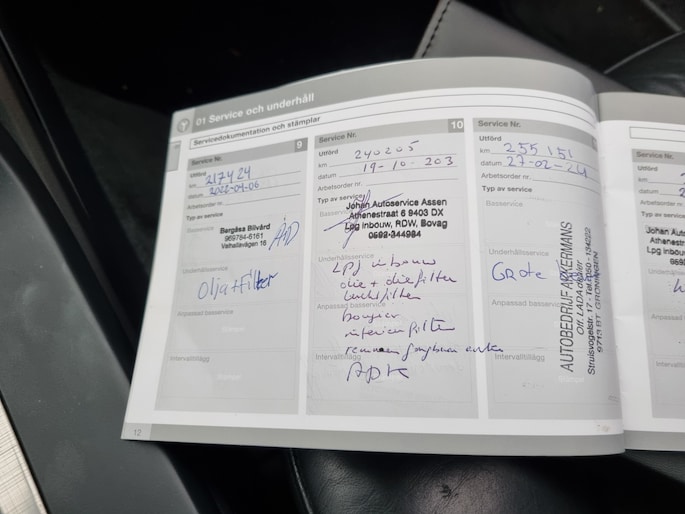 01 Service och underhåll
Servicedokumentation och stämplar
Service Nr. 9
Utförd
km 217424
datum 2022-04-06
Arbetsorder nr.
Typ av service
Basservice
Bergåsa Bilvård
Valhallavägen 16
Underhållsservice
Olja+filter
Anpassad basservice
Stämpel
Intervalltillägg
Stämpel
12
Service Nr. 10
Utförd
km 240205
datum 19-10-203
Arbetsorder nr.
Typ av service
Johan Autoservice Assen
Athenestraat 6 9403 DX
Lpg Inbouw, RDW, Bovag
0592-344984
Underhållsservice
LPG inbouw
olie + oliefilter
luchtfilter
Anpassad basservice
bougies
interieurfilter
Intervalltillägg
APK
Service Nr.
Utförd
km 255151
datum 27-02-24
Arbetsorder nr.
Typ av service
Basservice
Underhållsservice
Grote
Anpassad basservice
Intervalltillägg
AUTOBEDRIJF AKKERMANS
Off. LADA dealer
9713 BT GRONINGEN
Service Nr.
Utförd
km
datum
Arbetsorder
Typ av servi
Johan Aut